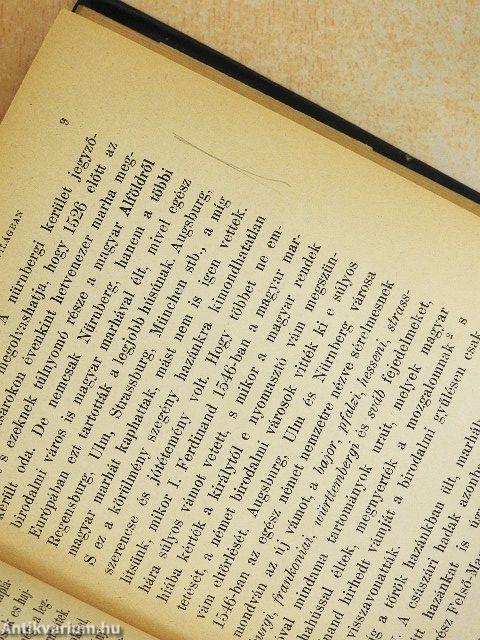 9
VILÁGBAN
A nürnbergi kerület jegyző-
megolvashatja, hogy 1526 előtt az
vásárokon évenkint hetvenezer marha meg-
s ezeknek túlnyomó része a magyar Alföldről
került oda. De nemcsak Nürnberg, hanem a többi
birodalmi város is magyar marhával élt, mivel egész
Európában ezt tartották a legjobb húsúnak Augsburg,
Regensburg, Ulm, Strassburg, München stb., a míg
magyar marhát kaphattak, mást nem is igen vettek.
S ez a körülmény szegény hazánkra kimondhatatlan
szerencse és jótétemény volt. Hogy többet ne em-
lítsünk, mikor I. Ferdinand 1546-ban a magyar mar-
hára súlyos vámot vetett, s mikor a magyar rendek
hiába kérték a királytól e nyomasztó vám megszün-
tetését, a német birodalmi városok vitték ki e súlyos
vám eltörlését. Augsburg, Ulm és Nürnberg városa
1546-ban az egész német nemzetre nézve sérelmesnek
mondván az új vámot, a bajor, pfalzi, hesseni, strass-
frankoniai, württembergi és sváb fejedelmeket,
mindama tartományok urait, melyek magyar
marhahússal éltek, megnyerték a mozgalomnak² s
hírhedt vámját a birodalmi gyűlésen csak
visszavonatták.
a török hazánkban ült, marhá
A császári hadak azonban
hazánkat is úgy
Felső-Mag
legna
Antikvarium.hu